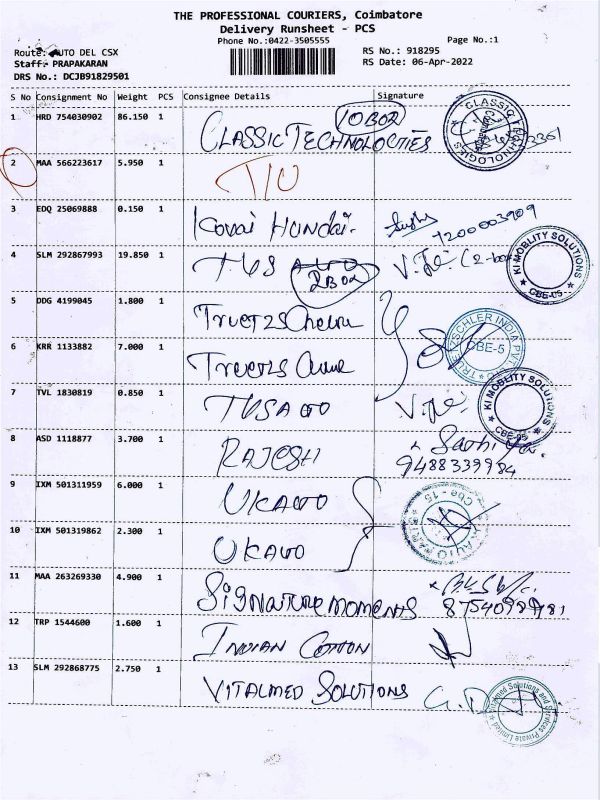 THE PROFESSIONAL COURIERS, Coimbatore
Delivery Runsheet - PCS
Phone No.:0422-3505555 Page No.:1
Route: AUTO DEL CSX RS No.: 918295
Staff: PRAPAKARAN RS Date: 06-Apr-2022
DRS No.: DCJB91829501
S No Consignment No Weight PCS Consignee Details Signature
1 HRD 754030902 86.150 1 CLASSIC TECHNOLOCTIES 10BOX CLASSIC TECHNOLOGIES
2 MAA 566223617 5.950 1
3 EDQ 25069888 0.150 1 Kovai HUNDai. 7200003909
4 SLM 292867993 19.850 1 TVS Auto 2 Box KI MOBLITY SOLUTIONS CBE-05
5 DDG 4199045 1.800 1
6 KRR 1133882 7.000 1 CBE-5
7 TVL 1830819 0.850 1 TVS AUTO KI MOBLITY SOLUTIONS CBE-05
8 ASD 1118877 3.700 1 RAJESH 9488339984
9 IXM 501311959 6.000 1 UKAUTO
10 IXM 501319862 2.300 1 UKAUTO
11 MAA 263269330 4.900 1 Signature moments
12 TRP 1544600 1.600 1 INDIAN COTTON
13 SLM 292868775 2.750 1 VITALMED SOLUTIONS